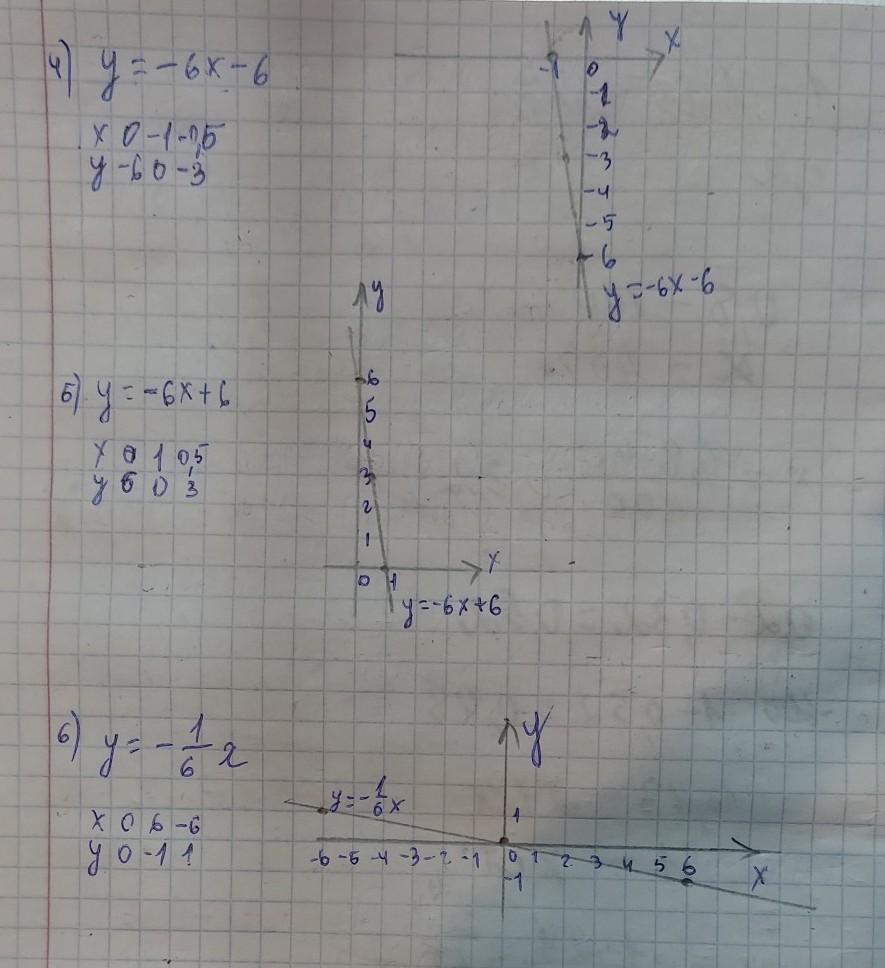 4) y = -6x - 6
x 0 -1 -0,5
y -6 0 -3
y
x
-1 0
-1
-2
-3
-4
-5
-6
y = -6x - 6
5) y = -6x + 6
x 0 1 0,5
y 6 0 3
y
6
5
4
3
2
1
x
0 1
y = -6x + 6
6) y = - 1/6 x
x 0 6 -6
y 0 -1 1
y
y = - 1/6 x
1
-6 -5 -4 -3 -2 -1 0 1 2 3 4 5 6
-1
x